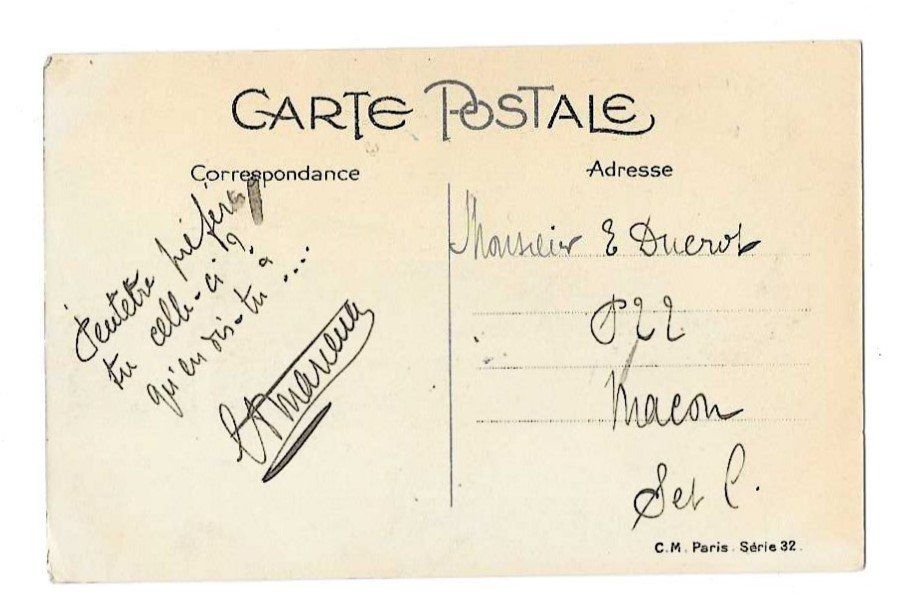 CARTE POSTALE
Correspondance
Peutêtre préfères
tu celle-ci ?
qu'en dis-tu ? ....
Adresse
Monsieur E Ducrot
P 22
Macon
S et L.
C.M. Paris. Série 32.